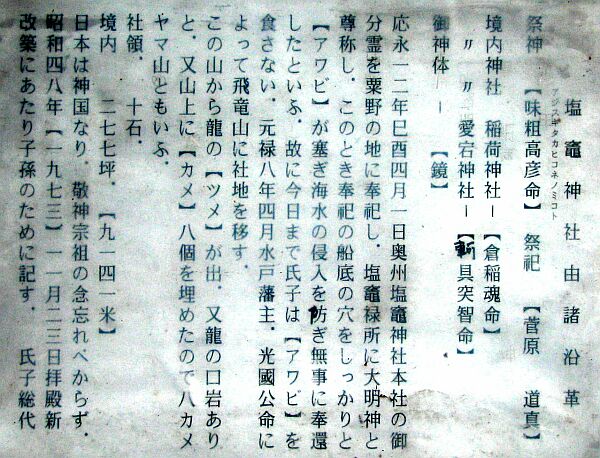 塩竈神社由諸沿革
アジスギタカヒコネノミコト
祭神 【味粗高彦命】 祭祀 【菅原 道真】
境内神社 稲荷神社ー【倉稲魂命】
〃 〃 愛宕神社ー【斬具突智命】
御神体 ー 【鏡】
応永一二年巳酉四月一日奥州塩竈神社本社の御
分霊を粟野の地に奉祀し．塩竈禄所に大明神と
尊称し．このとき奉祀の船底の穴をしっかりと
【アワビ】が塞ぎ海水の侵入を防ぎ無事に奉還
したといふ．故に今日まで氏子は【アワビ】を
食さない．元禄八年四月水戸藩主．光國公命に
よって飛竜山に社地を移す．
この山から龍の【ツメ】が出．又龍の口岩あり
と．又山上に【カメ】八個を埋めたので八カメ
ヤマ山ともいふ．
社領． 十石．
境内 二七七坪．【九一四一米】
日本は神国なり．敬神宗祖の念忘れべからず．
昭和四八年【一九七三】一一月二三日拝殿新
改築にあたり子孫のために記す． 氏子総代